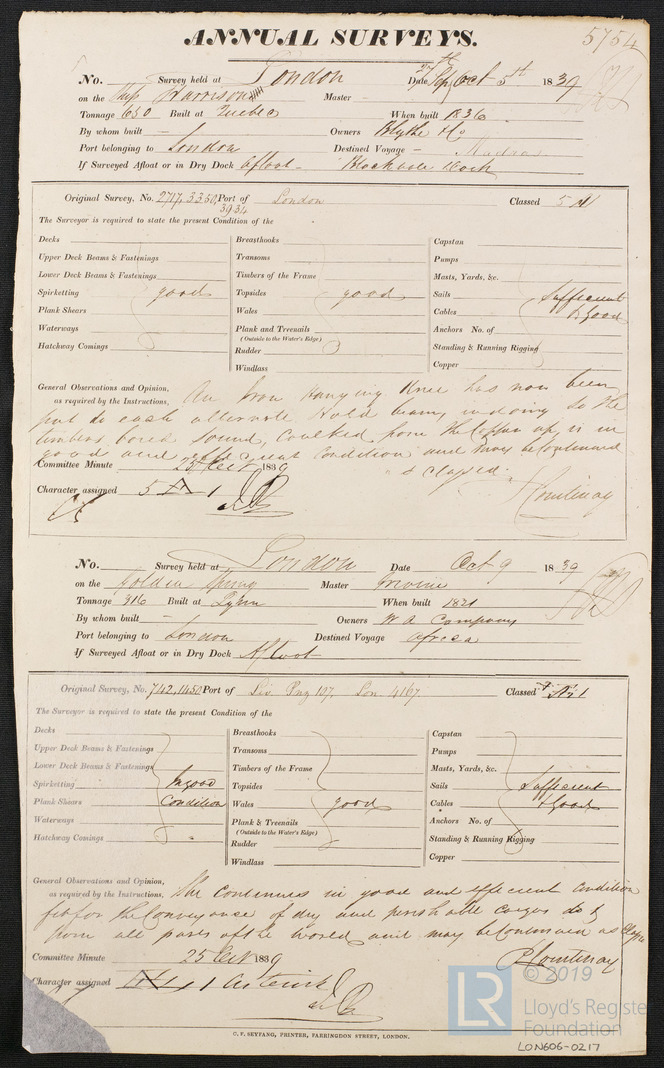 5754
ANNUAL SURVEYS.
No. Survey held at London Date Oct 5th 1839
on the Ship Harrison Master -
Tonnage 650 Built at Quebec When built 1836
By whom built - Owners Blythe & Co
Port belonging to London Destined Voyage - Madras
If Surveyed Afloat or in Dry Dock Afloat - Blackwall Dock
Original Survey, No. 2717, 3350, Port of London Classed 5 A1
3934
The Surveyor is required to state the present Condition of the
Decks Breasthooks Capstan
Upper Deck Beams & Fastenings Transoms Pumps
Lower Deck Beams & Fastenings Timbers of the Frame Masts, Yards, &c.
Spirketting good Topsides good Sails Sufficient
Plank Shears Wales Cables & Good
Waterways Plank and Treenails Anchors No. of
(Outside to the Water's Edge)
Hatchway Comings Rudder Standing & Running Rigging
Windlass Copper
General Observations and Opinion, An Iron Hanging Knee has now been
as required by the Instructions, put to each alternate Hold beam, in doing so the
timbers bored sound, Caulked from the Copper up, is in
good and efficient Condition and may be Continued
as Classed.
Committee Minute 25 Oct 1839
Character assigned 5 A 1
Courtenay
No. Survey held at London Date Oct 9 1839
on the Golden Spring Master Irvine
Tonnage 316 Built at Lynn When built 1821
By whom built - Owners W A Company
Port belonging to London Destined Voyage Africa
If Surveyed Afloat or in Dry Dock Afloat
Original Survey, No. 742, 1450 Port of Liv. Lon. 4167 Classed Æ 1
The Surveyor is required to state the present Condition of the
Decks Breasthooks Capstan
Upper Deck Beams & Fastenings Transoms Pumps
Lower Deck Beams & Fastenings Timbers of the Frame Masts, Yards, &c.
Spirketting In good Topsides Sails Sufficient
Plank Shears Condition Wales good Cables & Good
Waterways Plank & Treenails Anchors No. of
(Outside to the Water's Edge)
Hatchway Comings Rudder Standing & Running Rigging
Windlass Copper
General Observations and Opinion, She continues in good and efficient Condition
as required by the Instructions,
fit for the Conveyance of dry and perishable cargoes to &
from all parts of the World and may be Continued as Classed
Committee Minute 25 Oct 1839
Courtenay
Character assigned 1 Asterisk
C. F. SEYFANG, PRINTER, FARRINGDON STREET, LONDON.
LR
© 2019
Lloyd's Registe
Foundation
LON606-0217